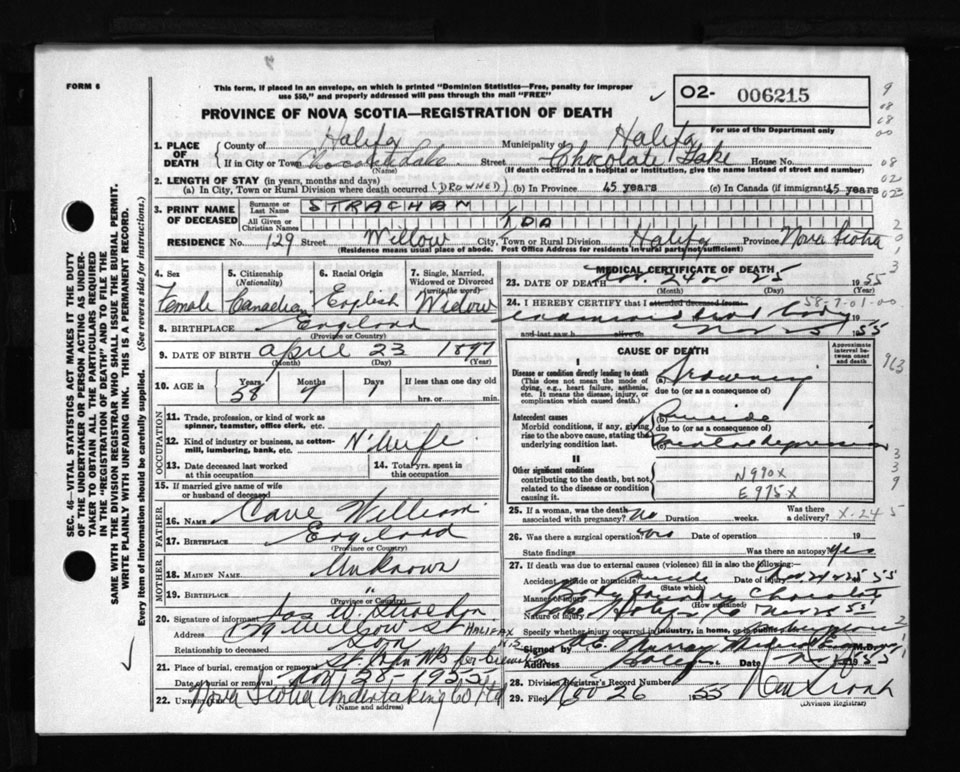 FORM 6
This form, if placed in an envelope, on which is printed "Dominion Statistics—Free, penalty for improper
use $50," and properly addressed will pass through the mail "FREE"
02- 006215
For use of the Department only
PROVINCE OF NOVA SCOTIA—REGISTRATION OF DEATH
SEC. 46—VITAL STATISTICS ACT MAKES IT THE DUTY
OF THE UNDERTAKER OR PERSON ACTING AS UNDER-
TAKER TO OBTAIN ALL THE PARTICULARS REQUIRED
IN THE "REGISTRATION OF DEATH" AND TO FILE THE
SAME WITH THE DIVISION REGISTRAR WHO SHALL ISSUE THE BURIAL PERMIT.
WRITE PLAINLY WITH UNFADING INK. THIS IS A PERMANENT RECORD.
Every item of Information should be carefully supplied. (See reverse side for instructions.)
1. PLACE OF DEATH
County of Halifax Municipality of Halifax
If in City or Town Chocolate Lake Street Chocolate Lake House No.
(Name) (If death occurred in a hospital or institution, give its name instead of street and number)
2. LENGTH OF STAY (in years, months and days)
(a) In City, Town or Rural Division where death occurred (DROWNED) (b) In Province 45 years (c) In Canada (if immigrant) 45 years
3. PRINT NAME OF DECEASED
Surname or Last Name STRACHAN
All Given or Christian Names IDA
RESIDENCE No. 129 Street Willow City, Town or Rural Division Halifax Province Nova Scotia
(Residence means usual place of abode. Post Office Address for residents in rural parts not sufficient)
4. Sex Female
5. Citizenship (Nationality) Canadian
6. Racial Origin English
7. Single, Married, Widowed or Divorced (write the word) Widow
8. BIRTHPLACE England
(Province or Country)
9. DATE OF BIRTH April 23 1897
(Month) (Day) (Year)
10. AGE in Years 58 Months 7 Days 1 If less than one day old
hrs. or min.
OCCUPATION
11. Trade, profession, or kind of work as
spinner, teamster, office clerk, etc.
12. Kind of industry or business, as cotton-
mill, lumbering, bank, etc. H'Wife
13. Date deceased last worked
at this occupation
14. Total yrs. spent in
this occupation
15. If married give name of wife
or husband of deceased
FATHER
16. NAME Cave William
17. BIRTHPLACE England
(Province or Country)
MOTHER
18. MAIDEN NAME Unknown
19. BIRTHPLACE "
(Province or Country)
20. Signature of informant Strachan
Address 129 Willow St HALIFAX N.S.
Relationship to deceased Son
21. Place of burial, cremation or removal St. John NB for Cremation
Date of burial or removal Nov 28 - 1955
22. Undertaker Nova Scotia Undertaking Co Ltd
(Name and address)
MEDICAL CERTIFICATE OF DEATH
23. DATE OF DEATH Nov. 24 or 25 1955
(Month) (Day) (Year)
24. I HEREBY CERTIFY that I attended deceased from 58-7-01-00
examined dead body 19
and last saw h alive on Nov 25 1955
CAUSE OF DEATH
Approximate interval between onset and death
I
Disease or condition directly leading to death
(This does not mean the mode of
dying, e.g., heart failure, asthenia,
etc. It means the disease, injury, or
complication which caused death.)
(a) Drowning
due to (or as a consequence of)
Antecedent causes
Morbid conditions, if any, giving
rise to the above cause, stating the
underlying condition last.
(b) Suicide
due to (or as a consequence of)
(c) Mental depression
II
Other significant conditions
contributing to the death, but not
related to the disease or condition
causing it.
N990X
E975X
25. If a woman, was the death
associated with pregnancy? no Duration weeks. Was there a delivery? X-24 5
26. Was there a surgical operation? no Date of operation 19
State findings Was there an autopsy? yes
27. If death was due to external causes (violence) fill in also the following:
Accident, suicide or homicide? Suicide Date of injury Nov 24 or 25 1955
(State which)
Manner of injury Body found Chocolate
(How sustained)
Nature of injury Lake Halifax Nov 25 55
Specify whether injury occurred in industry, in home, or in public place
Signed by Murray M.D.
Address Halifax Date 1955
28. Division Registrar's Record Number
29. Filed Nov 26 1955
(Division Registrar)